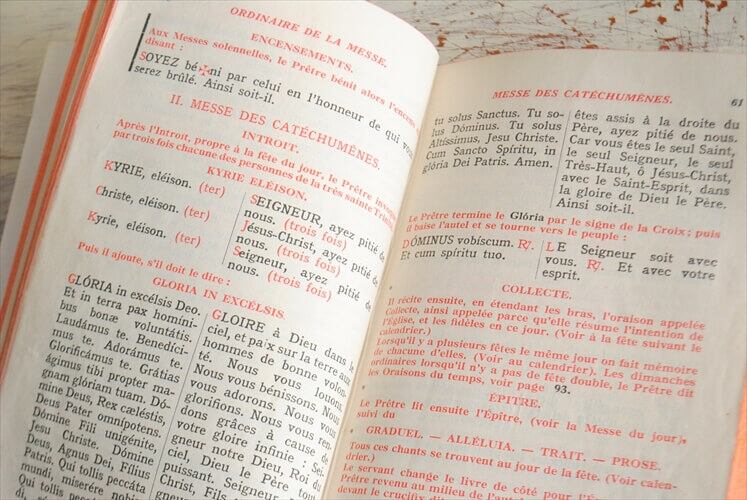 ORDINAIRE DE LA MESSE.
ENCENSEMENTS.
Aux Messes solennelles, le Prêtre bénit alors l'encens
disant :
SOYEZ bé✠ni par celui en l'honneur de qui vous
serez brûlé. Ainsi soit-il.
II. MESSE DES CATÉCHUMÈNES.
INTROIT.
Après l'Introit, propre à la fête du jour, le Prêtre invoque
par trois fois chacune des personnes de la très sainte Trinité
KYRIE ELÉISON.
KYRIE, eléison. (ter)
Christe, eléison. (ter)
Kyrie, eléison. (ter)
SEIGNEUR, ayez pitié de
nous. (trois fois)
Jésus-Christ, ayez pitié de
nous. (trois fois)
Seigneur, ayez pitié de
nous. (trois fois)
Puis il ajoute, s'il doit le dire :
GLORIA IN EXCÉLSIS.
GLÓRIA in excélsis Deo.
Et in terra pax homini-
bus bonæ voluntátis.
Laudámus te. Benedíci-
mus te. Adorámus te.
Glorificámus te. Grátias
ágimus tibi propter ma-
gnam glóriam tuam. Dó-
mine Deus, Rex cæléstis,
Deus Pater omnípotens.
Dómine Fili unigénite,
Jesu Christe. Dómine
Deus, Agnus Dei, Fílius
Patris. Qui tollis peccáta
mundi, miserére nobis.
Qui tollis peccáta
GLOIRE à Dieu dans le
ciel, et paix sur la terre aux
hommes de bonne volon-
té. Nous vous louons.
Nous vous bénissons. Nous
vous adorons. Nous vous
glorifions. Nous vous ren-
dons grâces à cause de
votre gloire infinie : Sei-
gneur notre Dieu, Roi du
ciel, Dieu le Père tout-
puissant. Seigneur
Christ, Fils
MESSE DES CATÉCHUMÈNES. 61
tu solus Sanctus. Tu so-
lus Dóminus. Tu solus
Altíssimus, Jesu Christe.
Cum Sancto Spíritu, in
glória Dei Patris. Amen.
êtes assis à la droite du
Père, ayez pitié de nous.
Car vous êtes le seul Saint,
le seul Seigneur, le seul
Très-Haut, ô Jésus-Christ,
avec le Saint-Esprit, dans
la gloire de Dieu le Père.
Ainsi soit-il.
Le Prêtre termine le Glória par le signe de la Croix ; puis
il baise l'autel et se tourne vers le peuple :
DÓMINUS vobíscum. ℟.
Et cum spíritu tuo.
LE Seigneur soit avec
vous. ℟. Et avec votre
esprit.
COLLECTE.
Il récite ensuite, en étendant les bras, l'oraison appelée
Collecte, ainsi appelée parce qu'elle résume l'intention de
l'Église, et les fidèles en ce jour. (Voir à la fête suivant le
calendrier.)
Lorsqu'il y a plusieurs fêtes le même jour on fait mémoire
de chacune d'elles. (Voir au calendrier). Les dimanches
ordinaires lorsqu'il n'y a pas de fête double, le Prêtre dit
les Oraisons du temps, voir page 93.
EPITRE.
Le Prêtre lit ensuite l'Épître, (voir la Messe du jour),
suivi du
GRADUEL. — ALLÉLUIA. — TRAIT. — PROSE.
Tous ces chants se trouvent au jour de la fête. (Voir calen-
drier.)
Le servant change le livre de côté pour l'É-
Prêtre revenu au milieu de l'autel
devant le crucifix